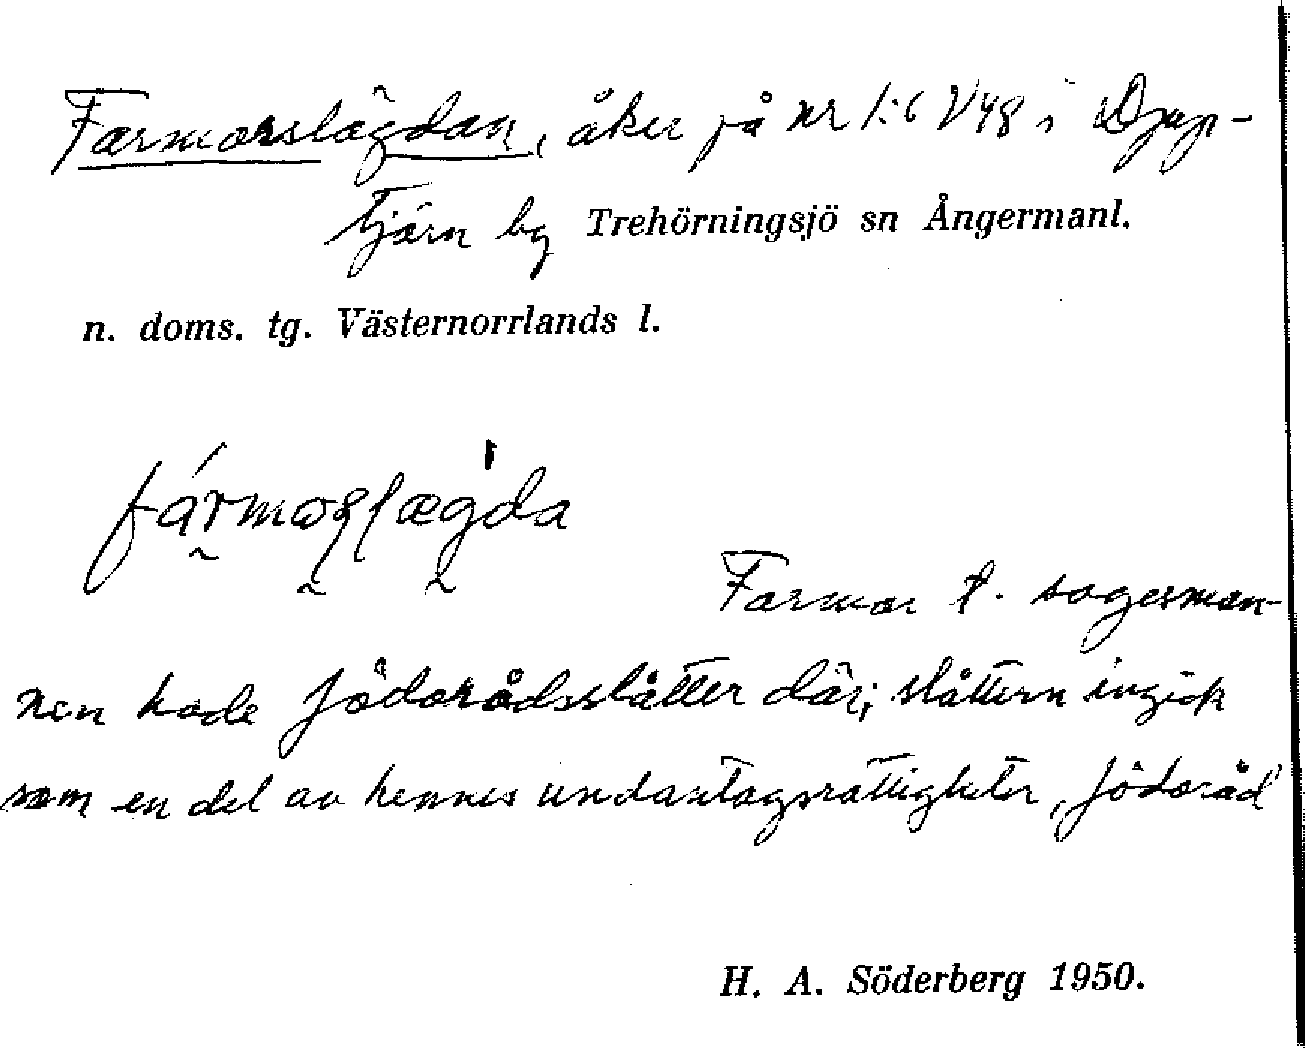 Farmorslägdan, åker på nr 1:6 V48 i Djup-
tjärn by Trehörningsjö sn Ångermanl.
n. doms. tg. Västernorrlands l.
Farmor t. sagesman-
nen hade födorådsslåtter där; slåttern ingick
som en del av hennes undantagsrättigheter, födoråd
H. A. Söderberg 1950.